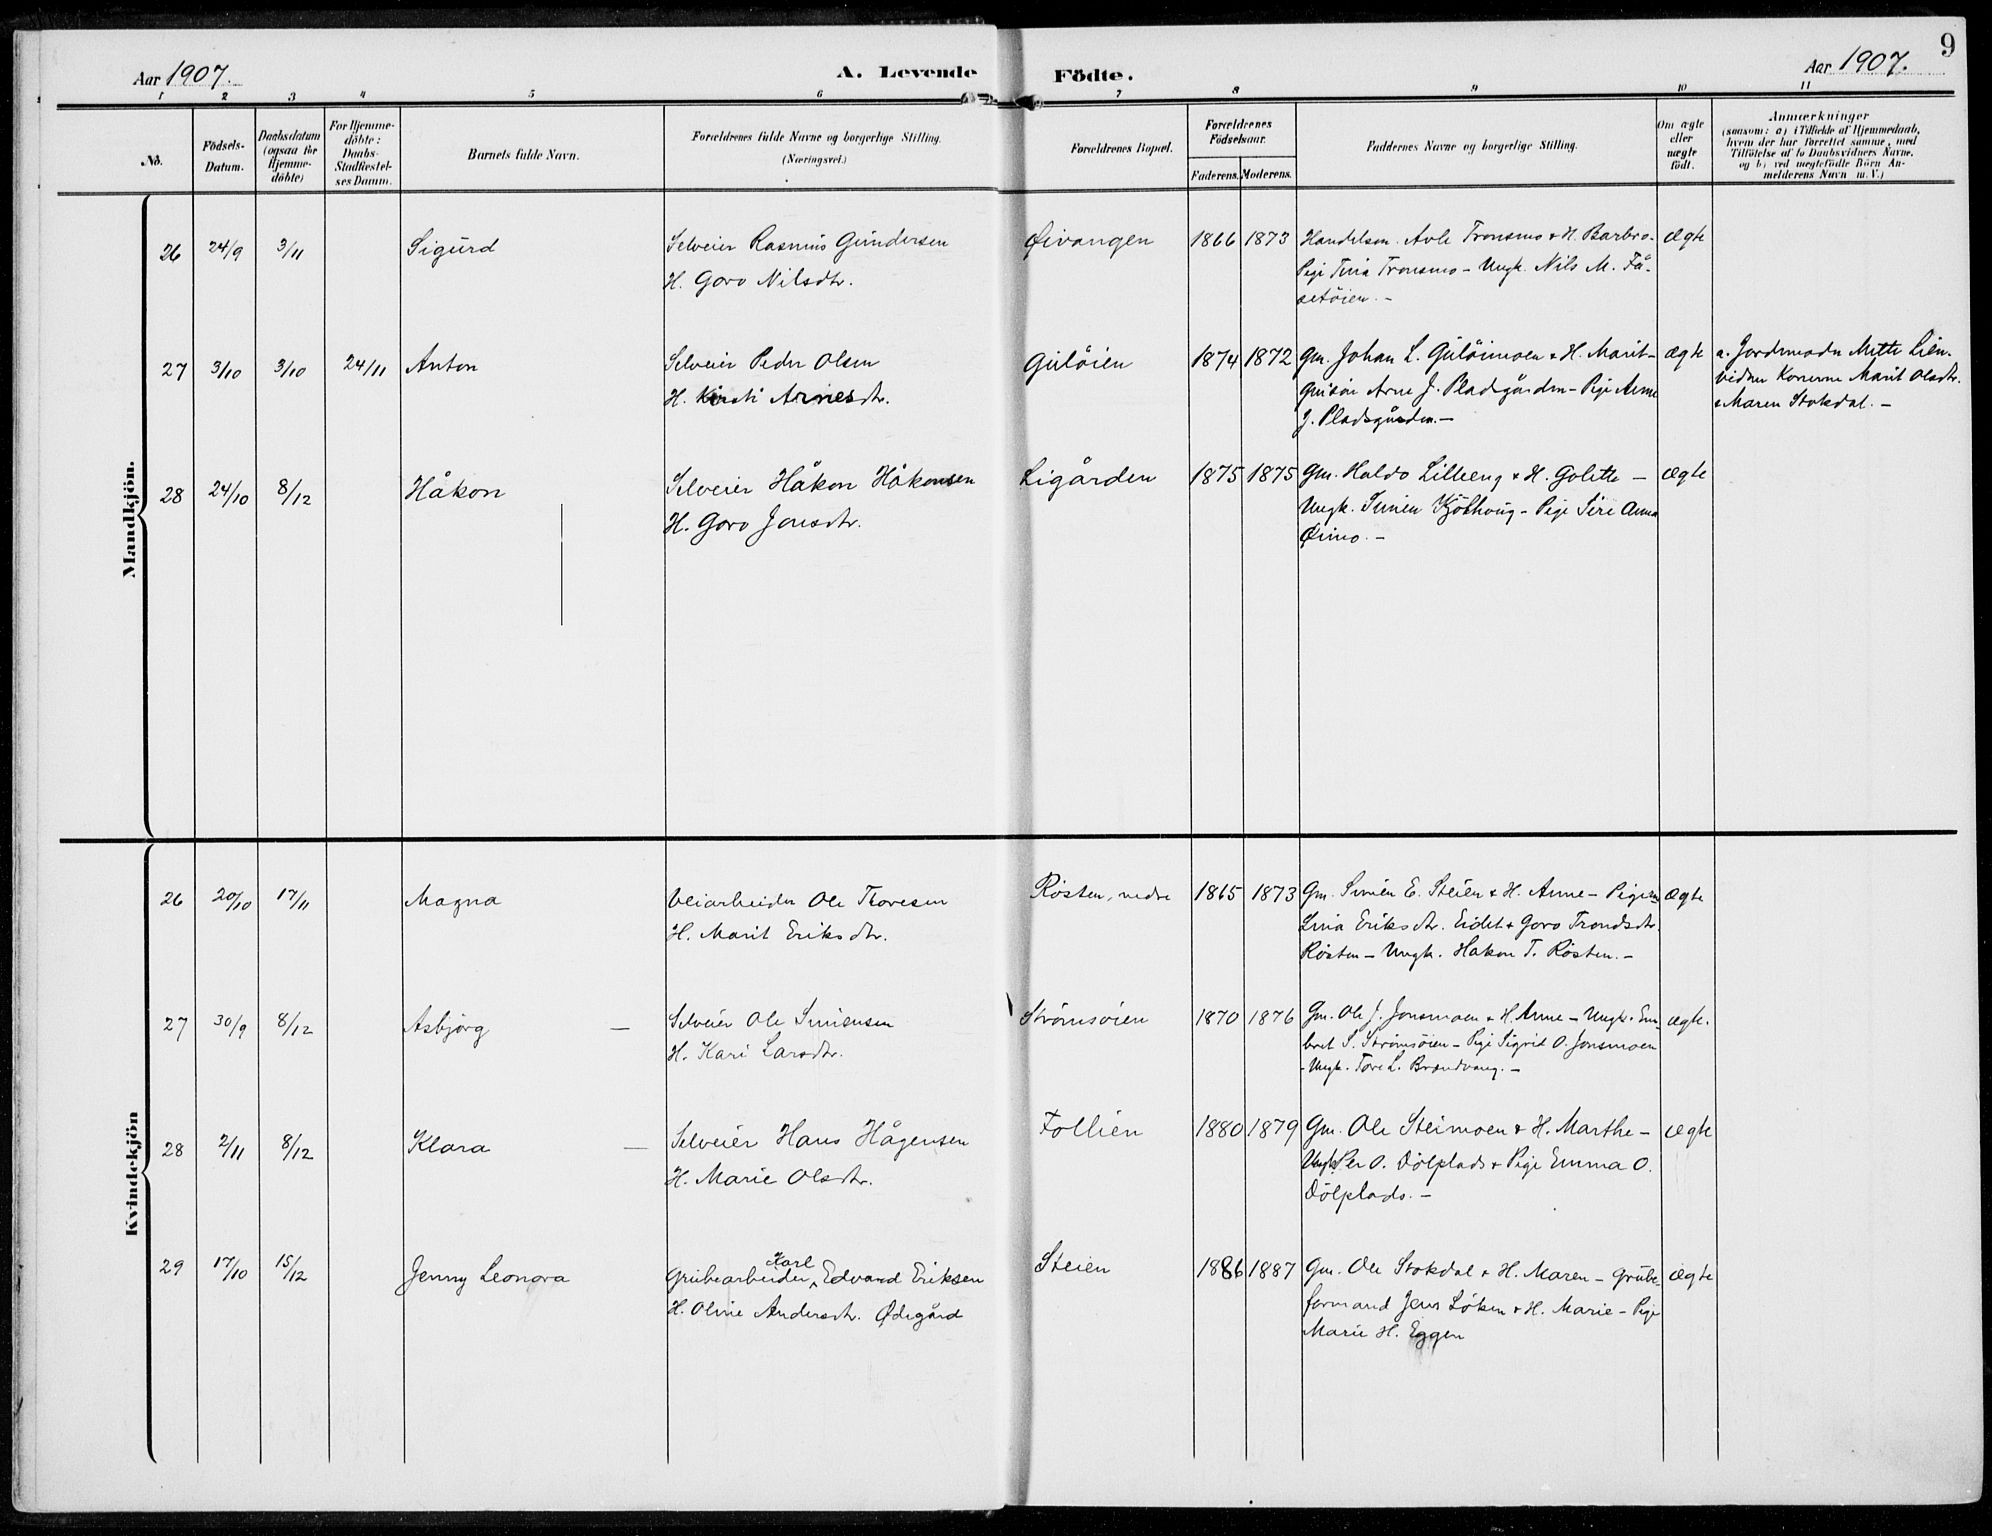 9
Aar 1907.
A. Levende Födte.
Aar 1907.
1 2 3 4 5 6 7 8 9 10 11
No.
Födsels-Datum.
Daabsdatum (ogsaa for Hjemme-döbte)
For Hjemme-döbte: Daabs-Stadfæstel-ses Datum.
Barnets fulde Navn.
Forældrenes fulde Navne og borgerlige Stilling. (Næringsvei.)
Forældrenes Bopæl.
Forældrenes Födselsaar.
Faderens. Moderens.
Faddernes Navne og borgerlige Stilling.
Om ægte eller uægte födt.
Anmærkninger
(saasom: a) i Tilfælde af Hjemmedaab,
hvem der har forrettet samme, med
Tilföielse af to Daabsvidners Navne,
og b) ved uegtefödte Börn An-
melderens Navn m. V.)
Mandkjön.
26 24/9 3/11 Sigurd Selveier Rasmus Gundersen Øivangen 1866 1873 Handelsm. Avle Tronsmo & H. Barbro - ægte
H. Goro Nilsdtr. Pige Tina Tronsmo - Ungk. Nils M. Få-
setöien. -
27 3/10 3/10 24/11 Anton Selveier Peder Olsen Gulöien 1874 1872 Gm. Johan L. Gulöimoen & H. Marit - ægte a. Jordmoder Mette Lien.
H. Kirsti Arnesdtr. Arne J. Pladsgården - Pige Anne Vidner Konerne Marit Olsdtr.
J. Pladsgården. - & Maren Stokdal. -
28 24/10 8/12 Håkon Selveier Håkon Håkonsen Ligården 1875 1875 Gm. Haldo Lilleeng & H. Golette - ægte
H. Goro Jonsdtr. Ungk. Simen Kjölhaug - Pige Siri Anna
Øimo. -
Kvindekjön
26 20/10 17/11 Magna Veiarbeider Ole Thoresen Rösten, nedre 1865 1873 Gm. Simen E. Steien & H. Anne - Piger ægte
H. Marit Eriksdtr. Lina Eriksdtr. Eidet & Goro Trondsdtr.
Røsten - Ungk. Hakon T. Røsten. -
27 30/9 8/12 Asbjörg - Selveier Ole Simensen Strömsöien 1870 1876 Gm. Ole J. Jonsmoen & H. Anne - Ungk. Em- ægte.
H. Kari Larsdtr. bret S. Strömsöien - Pige Sigrid O. Jonsmoen
- Ungk. Tore L. Brandvang. -
28 2/11 8/12 Klara - Selveier Hans Hågensen Follien 1880 1879 Gm. Ole Steimoen & H. Marthe - ægte
H. Marie Olsdtr. Ungk. Per O. Dölplads & Pige Emma O.
Dölplads. -
29 17/10 15/12 Jenny Leonora Grubearbeider Karl Edvard Eriksen Steien 1886 1887 Gm. Ole Stokdal & H. Maren - Grube- ægte
H. Oline Andersdtr. Ødegård formand Jens Löken & H. Marie - Pige
Marie H. Eggen